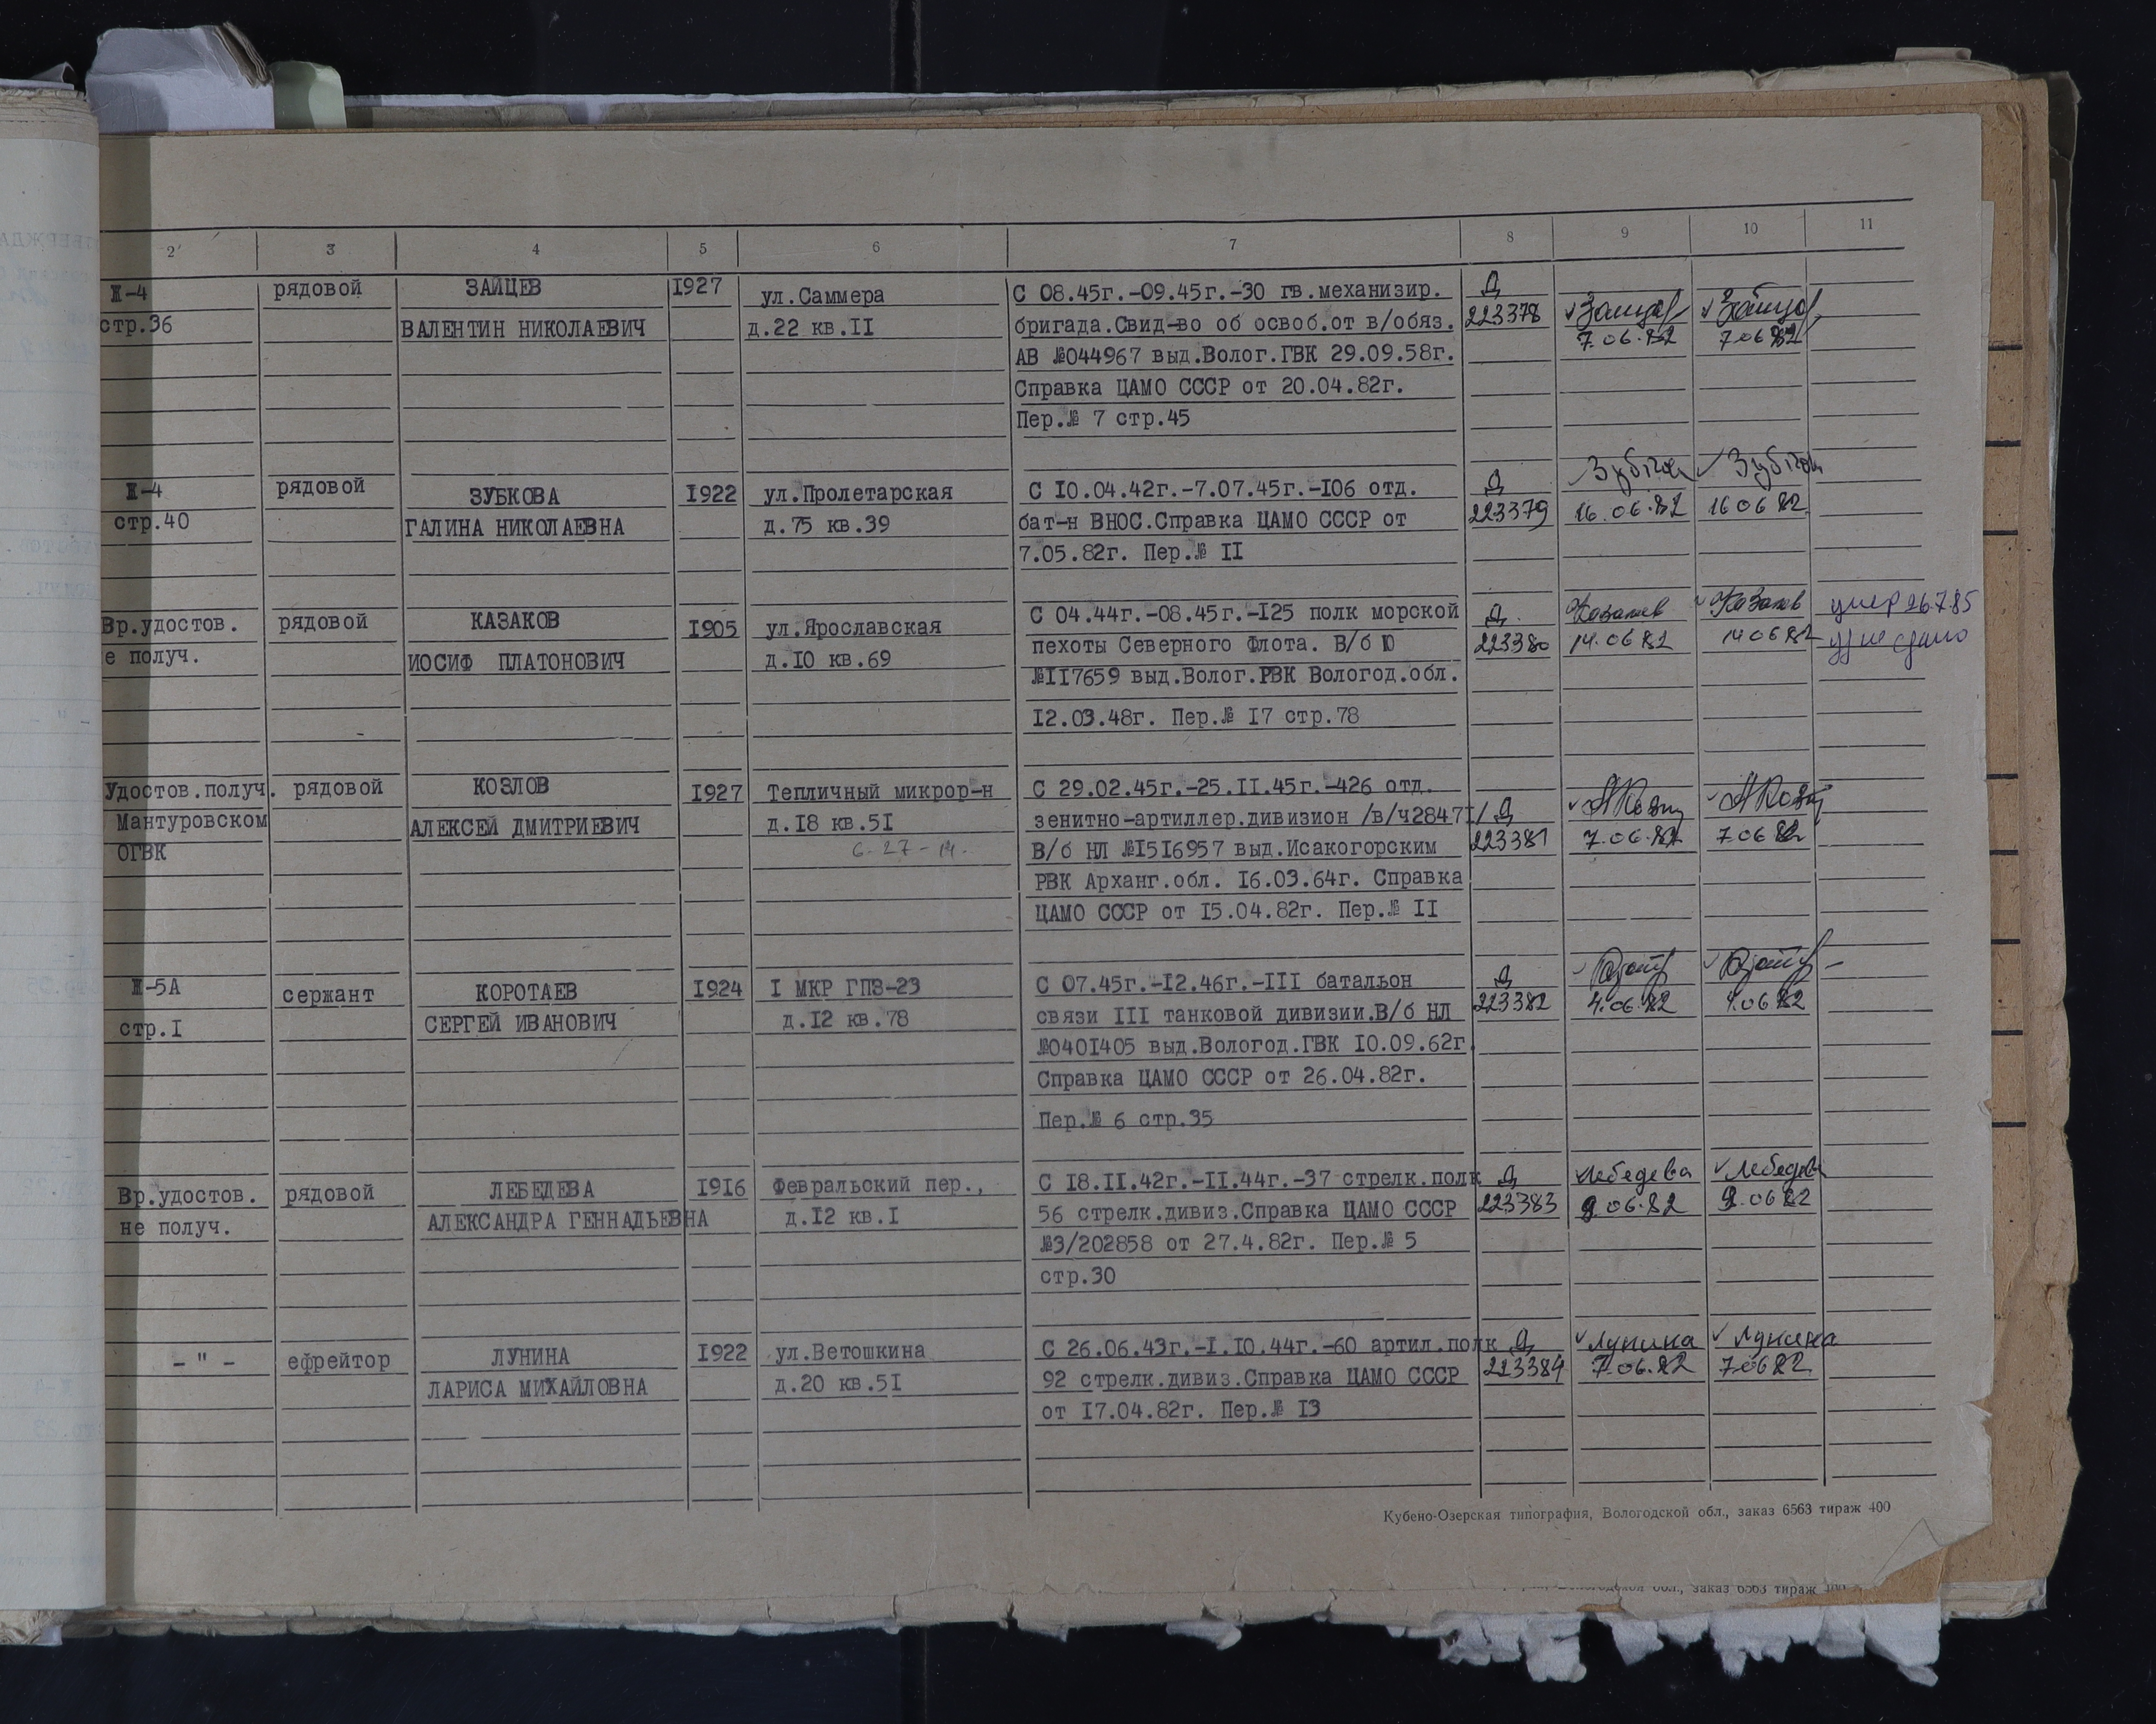 2 3 4 5 6 7 8 9 10 11
Ж-4 рядовой ЗАЙЦЕВ 1927 ул.Саммера С 08.45г.-09.45г.-30 гв.механизир. Д
стр.36 ВАЛЕНТИН НИКОЛАЕВИЧ д.22 кв.II бригада.Свид-во об освоб.от в/обяз. 223378 Зайцев Зайцев
АВ №044967 выд.Волог.ГВК 29.09.58г. 7.06.82 7 06 82
Справка ЦАМО СССР от 20.04.82г.
Пер.№ 7 стр.45
Ж-4 рядовой ЗУБКОВА 1922 ул.Пролетарская С I0.04.42г.-7.07.45г.-I06 отд. Д
стр.40 ГАЛИНА НИКОЛАЕВНА д.75 кв.39 бат-н ВНОС.Справка ЦАМО СССР от 223379 16.06.82 16 06 82
7.05.82г. Пер.№ II
Вр.удостов. рядовой КАЗАКОВ 1905 ул.Ярославская С 04.44г.-08.45г.-I25 полк морской Д Казаков Казаков умер 26.7.85
е получ. ИОСИФ ПЛАТОНОВИЧ д.I0 кв.69 пехоты Северного Флота. В/б Ю 223380 14.06.82 14 06 82 уд не сдано
№II7659 выд.Волог.РВК Вологод.обл.
I2.03.48г. Пер.№ I7 стр.78
Удостов.получ. рядовой КОЗЛОВ 1927 Тепличный микрор-н С 29.02.45г.-25.II.45г.-426 отд.
Мантуровском АЛЕКСЕЙ ДМИТРИЕВИЧ д.I8 кв.5I зенитно-артиллер.дивизион /в/ч2847I/ Д
ОГВК 6-27-14. В/б НЛ №I5I6957 выд.Исакогорским 223381 7.06.82 7 06 82
РВК Арханг.обл. I6.03.64г. Справка
ЦАМО СССР от I5.04.82г. Пер.№ II
Ж-5А сержант КОРОТАЕВ 1924 I МКР ГПЗ-23 С 07.45г.-I2.46г.-III батальон Д
стр.I СЕРГЕЙ ИВАНОВИЧ д.I2 кв.78 связи III танковой дивизии.В/б НЛ 223382 4.06.82 4.06.82
№040I405 выд.Вологод.ГВК I0.09.62г.
Справка ЦАМО СССР от 26.04.82г.
Пер.№ 6 стр.35
Вр.удостов. рядовой ЛЕБЕДЕВА 1916 Февральский пер., С I8.II.42г.-II.44г.-37 стрелк.полк Д Лебедева Лебедева
не получ. АЛЕКСАНДРА ГЕННАДЬЕВНА д.I2 кв.I 56 стрелк.дивиз.Справка ЦАМО СССР 223383 9 06.82 9.06 82
№3/202858 от 27.4.82г. Пер.№ 5
стр.30
- " - ефрейтор ЛУНИНА 1922 ул.Ветошкина С 26.06.43г.-I.I0.44г.-60 артил.полк Д Лунина Лунина
ЛАРИСА МИХАЙЛОВНА д.20 кв.5I 92 стрелк.дивиз.Справка ЦАМО СССР 223384 7.06.82 7 06 82
от I7.04.82г. Пер.№ I3
Кубено-Озерская типография, Вологодской обл., заказ 6563 тираж 400
обл., заказ 6563 тираж 400